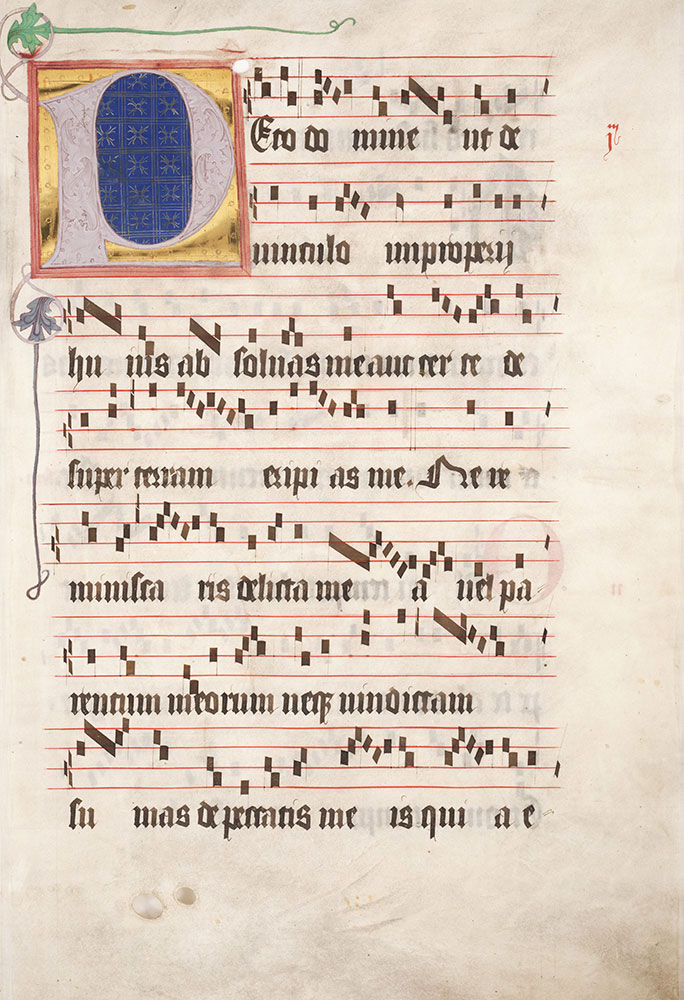 PEto do mine ut de
uinculo improperij
hu ius ab soluas me aut cer te de
super terram eripi as me. Ne re
minisca ris delicta me a uel pa
rentum meorum neqꝫ uindictam
su mas de peccatis me is quia e